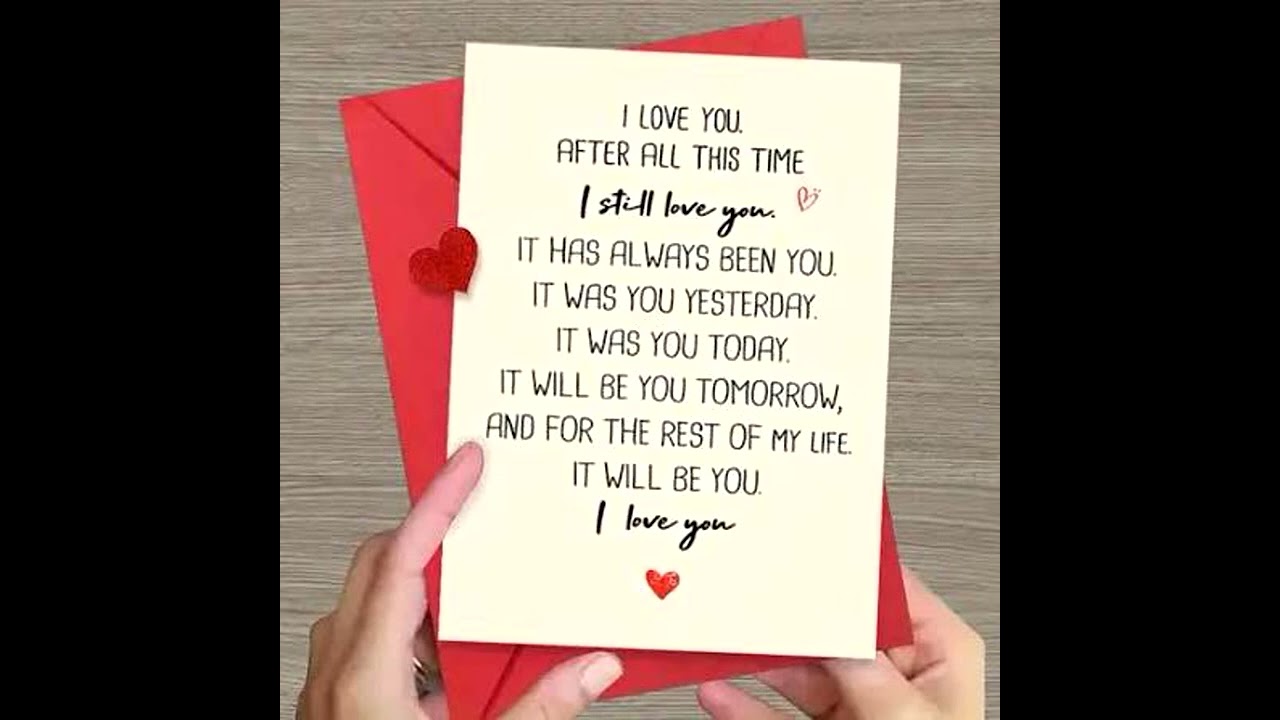 I LOVE YOU.
AFTER ALL THIS TIME
I still love you.
IT HAS ALWAYS BEEN YOU.
IT WAS YOU YESTERDAY.
IT WAS YOU TODAY.
IT WILL BE YOU TOMORROW,
AND FOR THE REST OF MY LIFE.
IT WILL BE YOU.
I love you